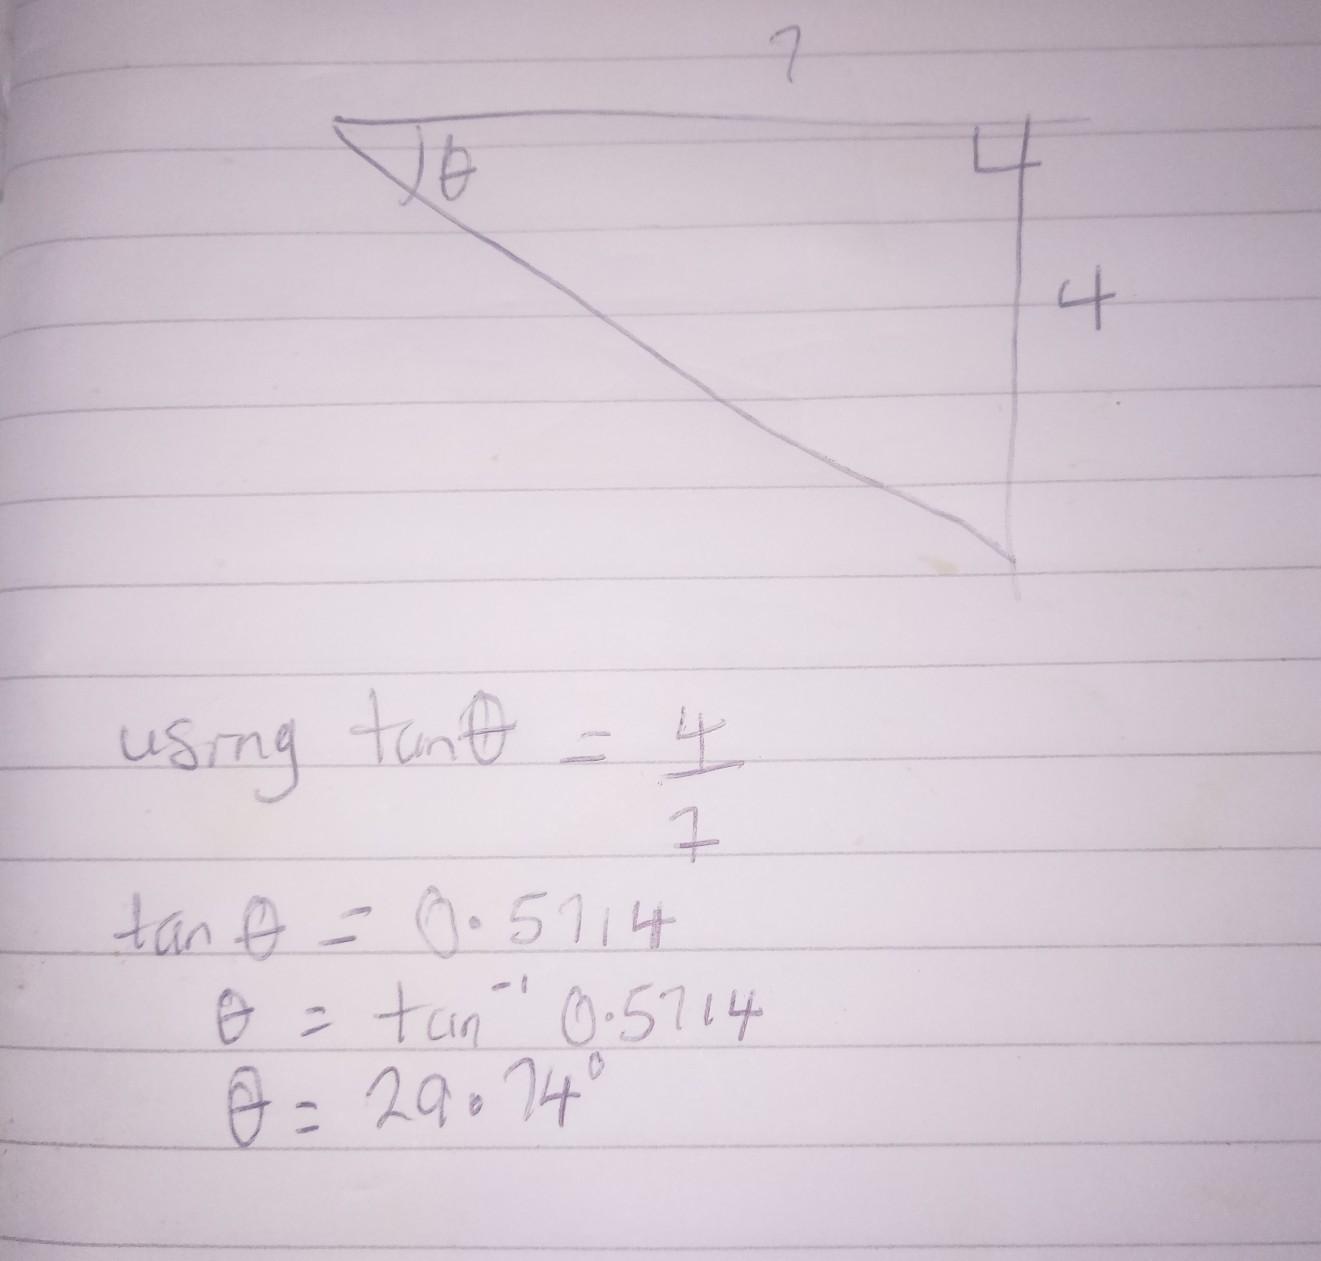 7
θ
4
using tanθ = 4/7
tan θ = 0.5714
θ = tan⁻¹ 0.5714
θ = 29.74°